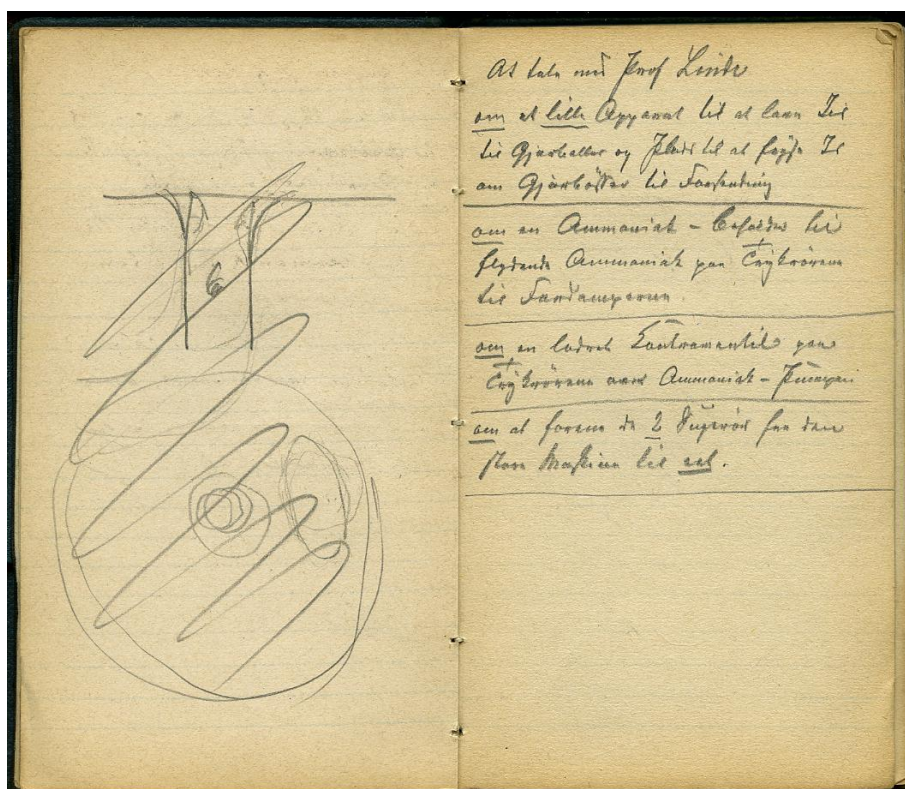 At tale med Prof Linde
om et lille Apparat til at lave Iis
til Gjærballer og Plads til at fryse Is
om Gjærbøsser til Forsending
om en Ammoniak - Beholder til
flydende Ammoniak paa Trykrørene
til Fordamperne.
om en lodret Contraventil paa
Trykrørene ved Ammoniak - Pumpen
om at forene de 2 Sugerør fra den
store Maskine til eet.